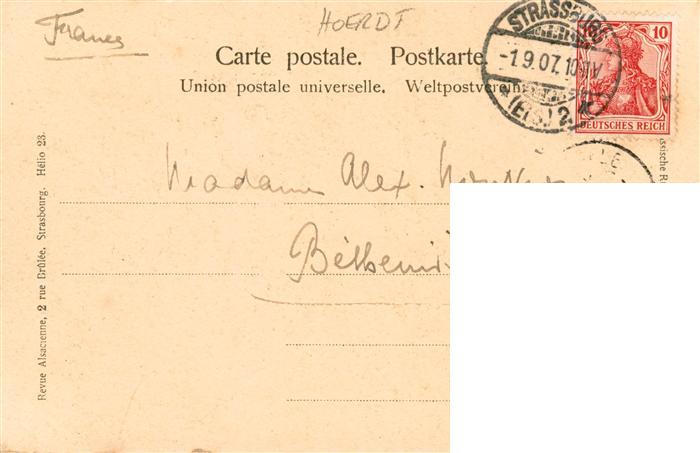 France
HOERDT
Carte postale. Postkarte.
Union postale universelle. Weltpostverein.
STRASSBURG
-1.9.07.10
(Els.) 2
10
DEUTSCHES REICH
Madame Alex.
Revue Alsacienne, 2 rue Brûlée, Strasbourg. Hélio 23.